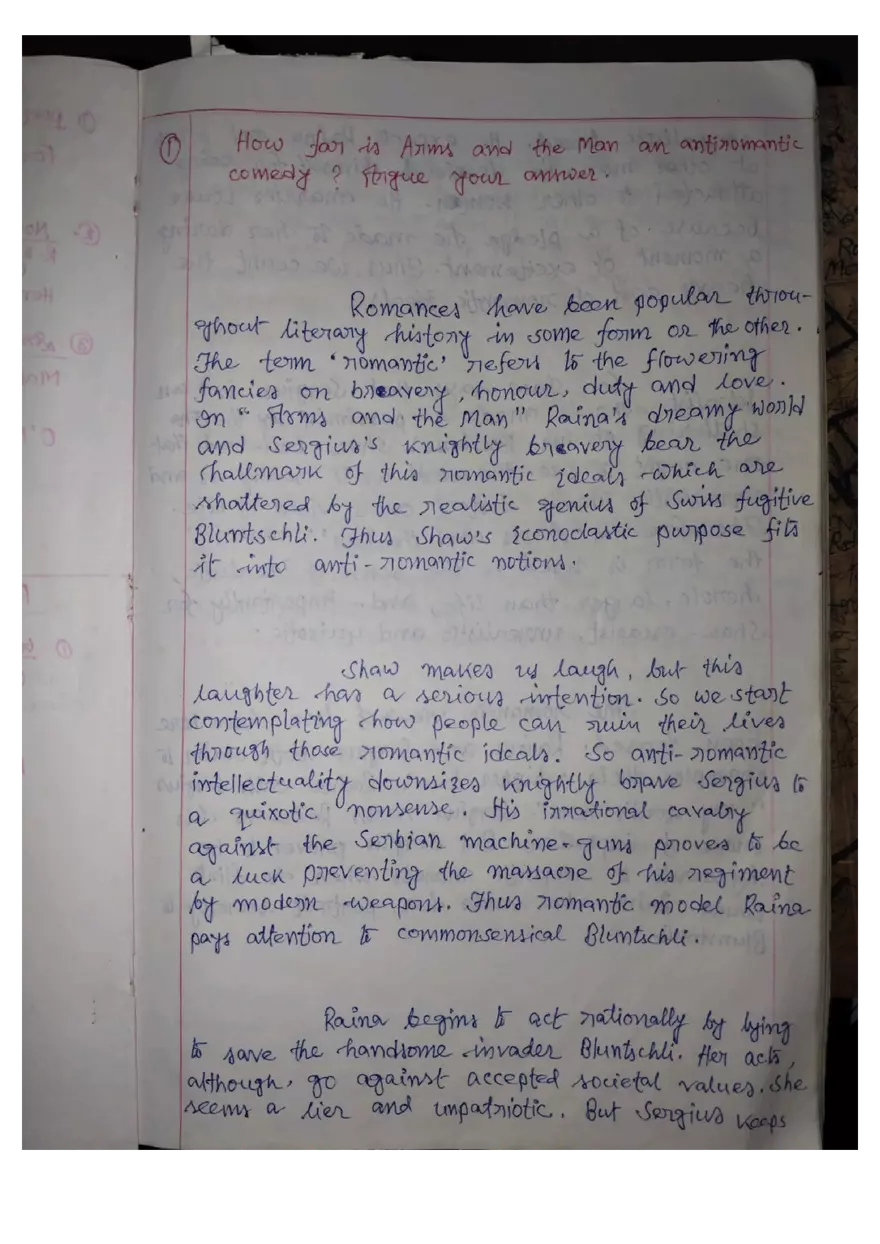 ① How far is Arms and the Man an antiromantic
comedy ? Argue your answer.
Romances have been popular throu-
ghout literary history in some form or the other.
The term 'romantic' refers to the flowering
fancies on breavery, honour, duty and love.
In "Arms and the Man" Raina's dreamy world
and Sergius's knightly breavery bear the
hallmark of this romantic ideals which are
shattered by the realistic genius of Swiss fugitive
Bluntschli. Thus Shaw's iconoclastic purpose fits
it into anti-romantic notions.
Shaw makes us laugh, but this
laughter has a serious intention. So we start
contemplating how people can ruin their lives
through those romantic ideals. So anti-romantic
intellectuality downsizes knightly brave Sergius to
a quixotic nonsense. His irrational cavalry
against the Serbian machine-guns proves to be
a luck preventing the massacre of his regiment
by modern weapons. Thus romantic model Raina
pays attention to commonsensical Bluntschli.
Raina begins to act rationally by lying
to save the handsome invader Bluntschli. Her acts,
although, go against accepted societal values. She
seems a lier and unpatriotic. But Sergius keeps